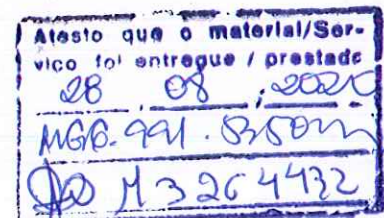 Atesto que o material/Ser-
vico foi entregue / prestado
28 08 2020
M 3264432